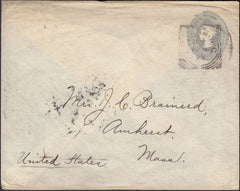 Mrs J. C. Brainerd,
Amherst,
Mass.
United States